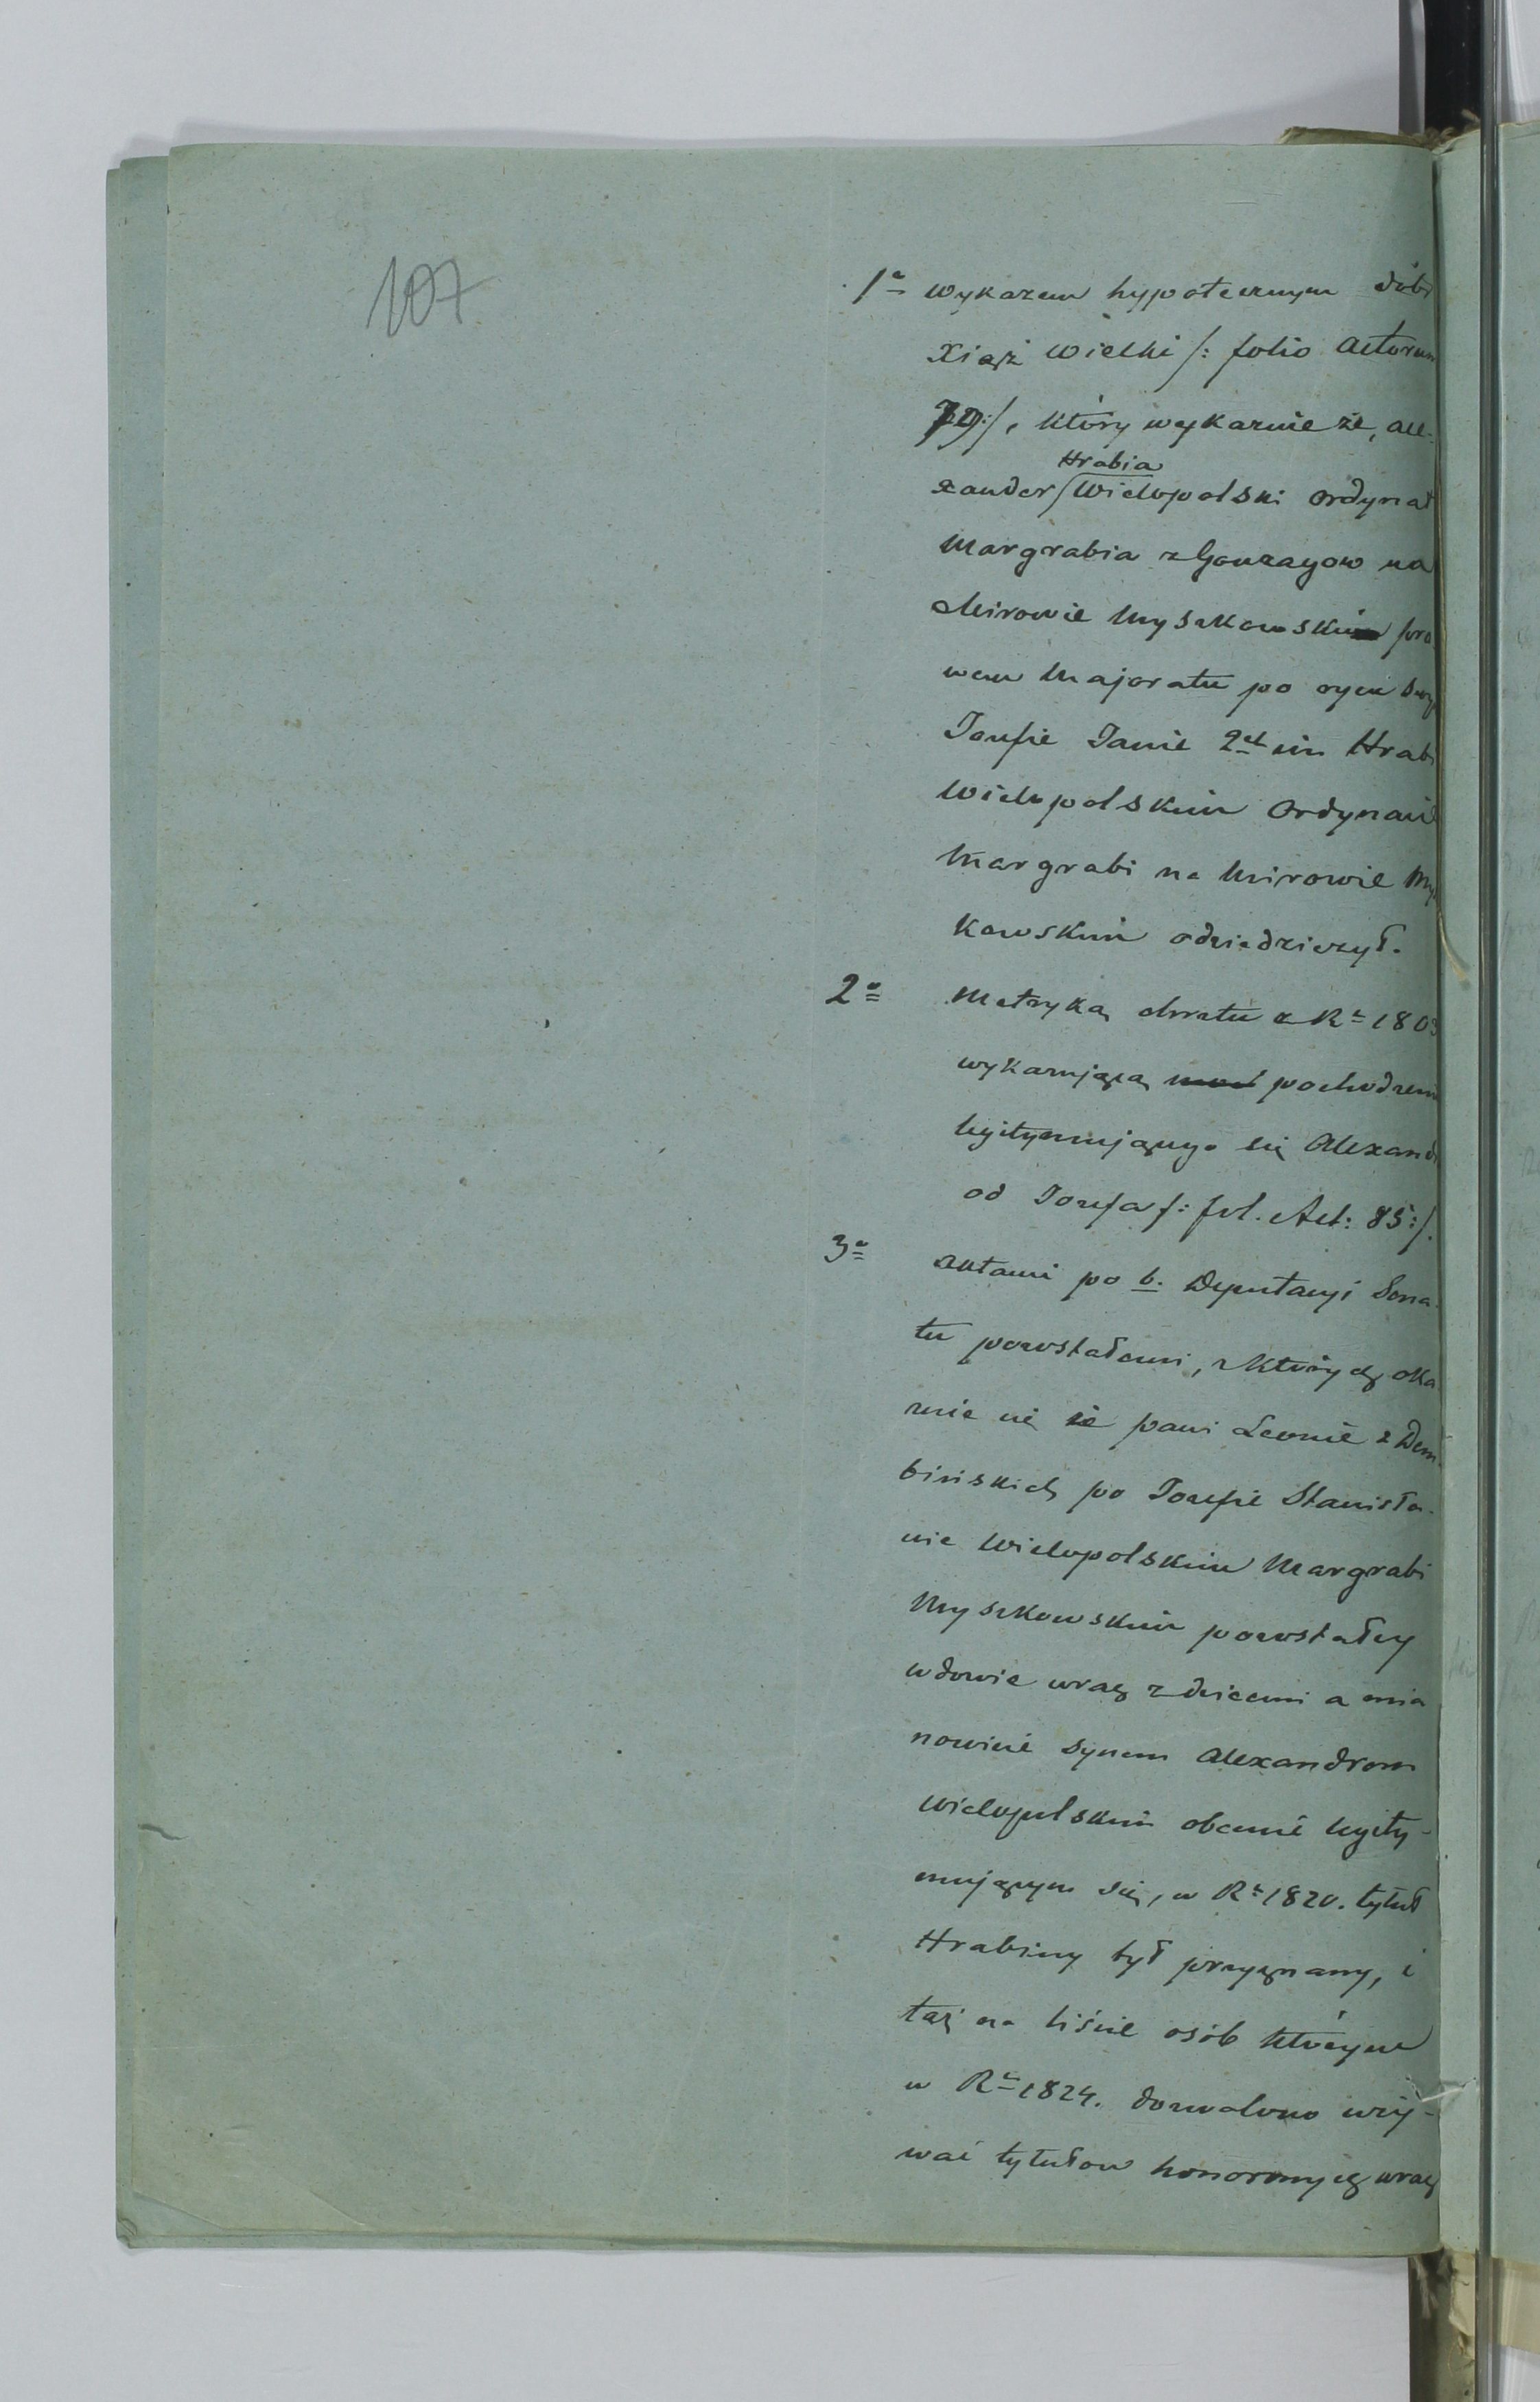 107
1º wykazem hypotecznym dóbr
Xiąż Wielki /: folio actorum
79:/, który wykazuie że, Ale-
Hrabia
xander Wielopolski Ordynat
Margrabia z Gonzagow na
Mirowie Myszkowski pra
wem Majoratu po oycu swy
Jozefie Janie 2ch im Hrab
Wielopolskim Ordynacie
Margrabi na Mirowie My
kowskim odziedziczył.
2º Metryką chrztu z Rº 1803
wykazującą pochodzeni
legitymującego się Alexand
od Jozefa /: fol. Act: 85:/.
3º aktami po b. Deputacyi Sena-
tu pozostałemi, z których oka
zuie się że pani Leonie z Dem-
bińskich po Jozefie Stanisła-
wie Wielopolskim Margrabi
Myszkowskim pozostałey
wdowie wraz z dziećmi a mia
nowicie synem Alexandrem
Wielopolskim obecnie legity-
mującym się, w Rº 1820. tytuł
Hrabiny był przyznany, i
taż na liście osób którym
w Rº 1824. dozwolono uży-
wać tytułow honorowych wraz